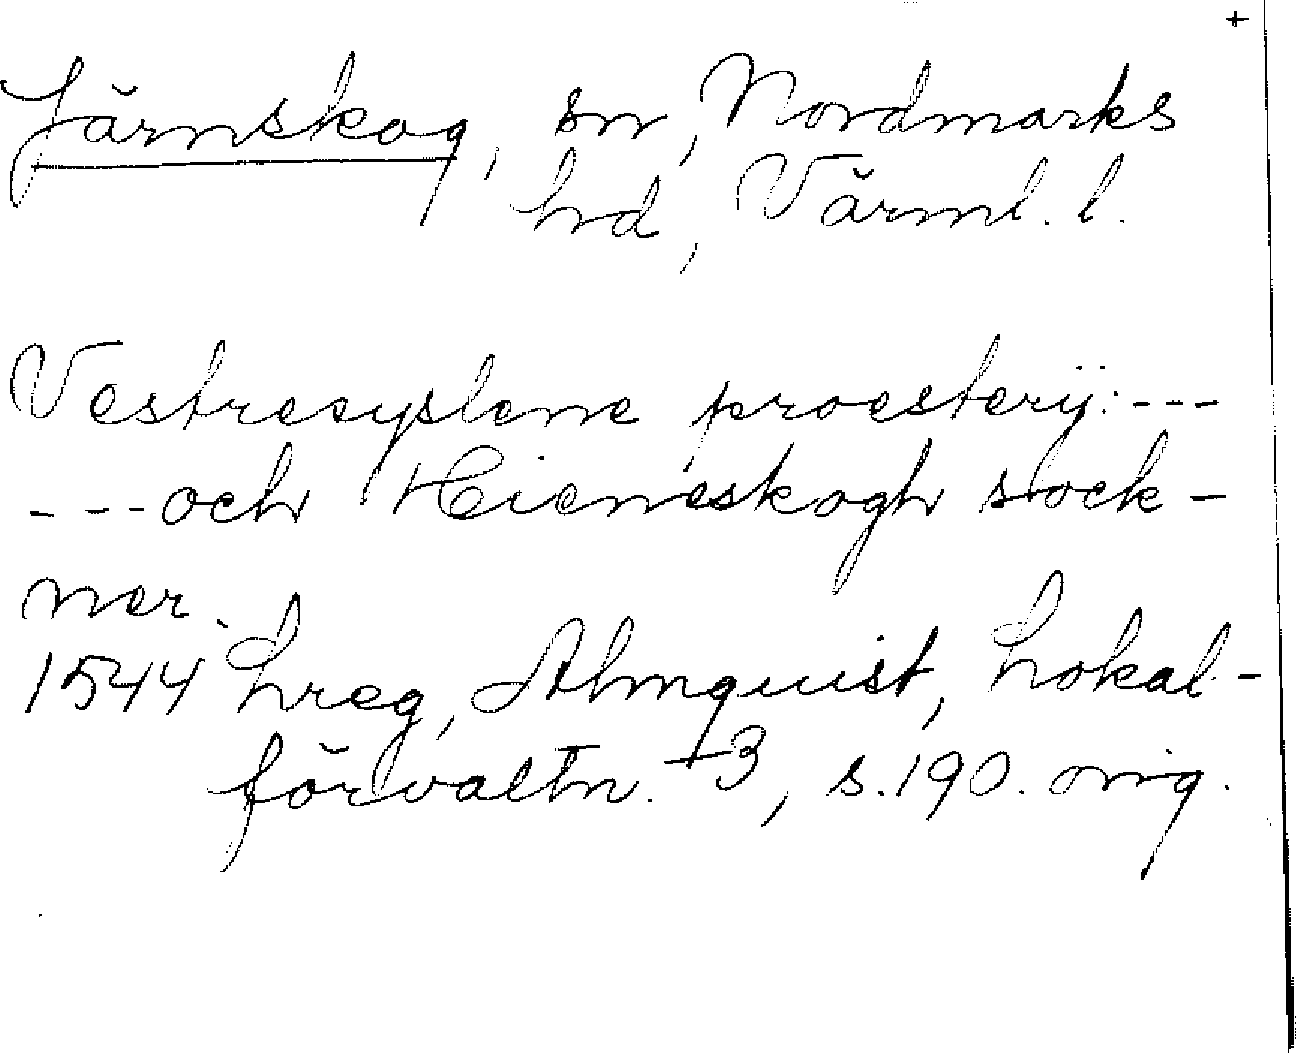 +
Järnskog, sn, Nordmarks
hd, Värml. l.
Vestresyslene proesterij: ---
--- och Hierneskogh sock-
ner.
1544 Lreg, Almquist, Lokal-
förvaltn. +3, s. 190. orig.